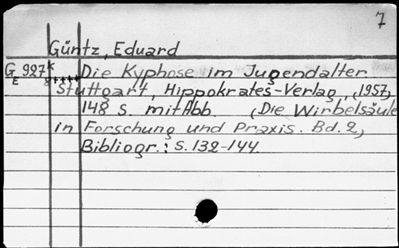 7
Güntz, Eduard
G 927 k Die Kyphose im Jugendalter
E Stuttgart, Hippokrates-Verlag, (1957)
148 S. mit Abb. (Die Wirbelsäule
in Forschung und Praxis. Bd. 2,
Bibliogr.: S. 132-144.